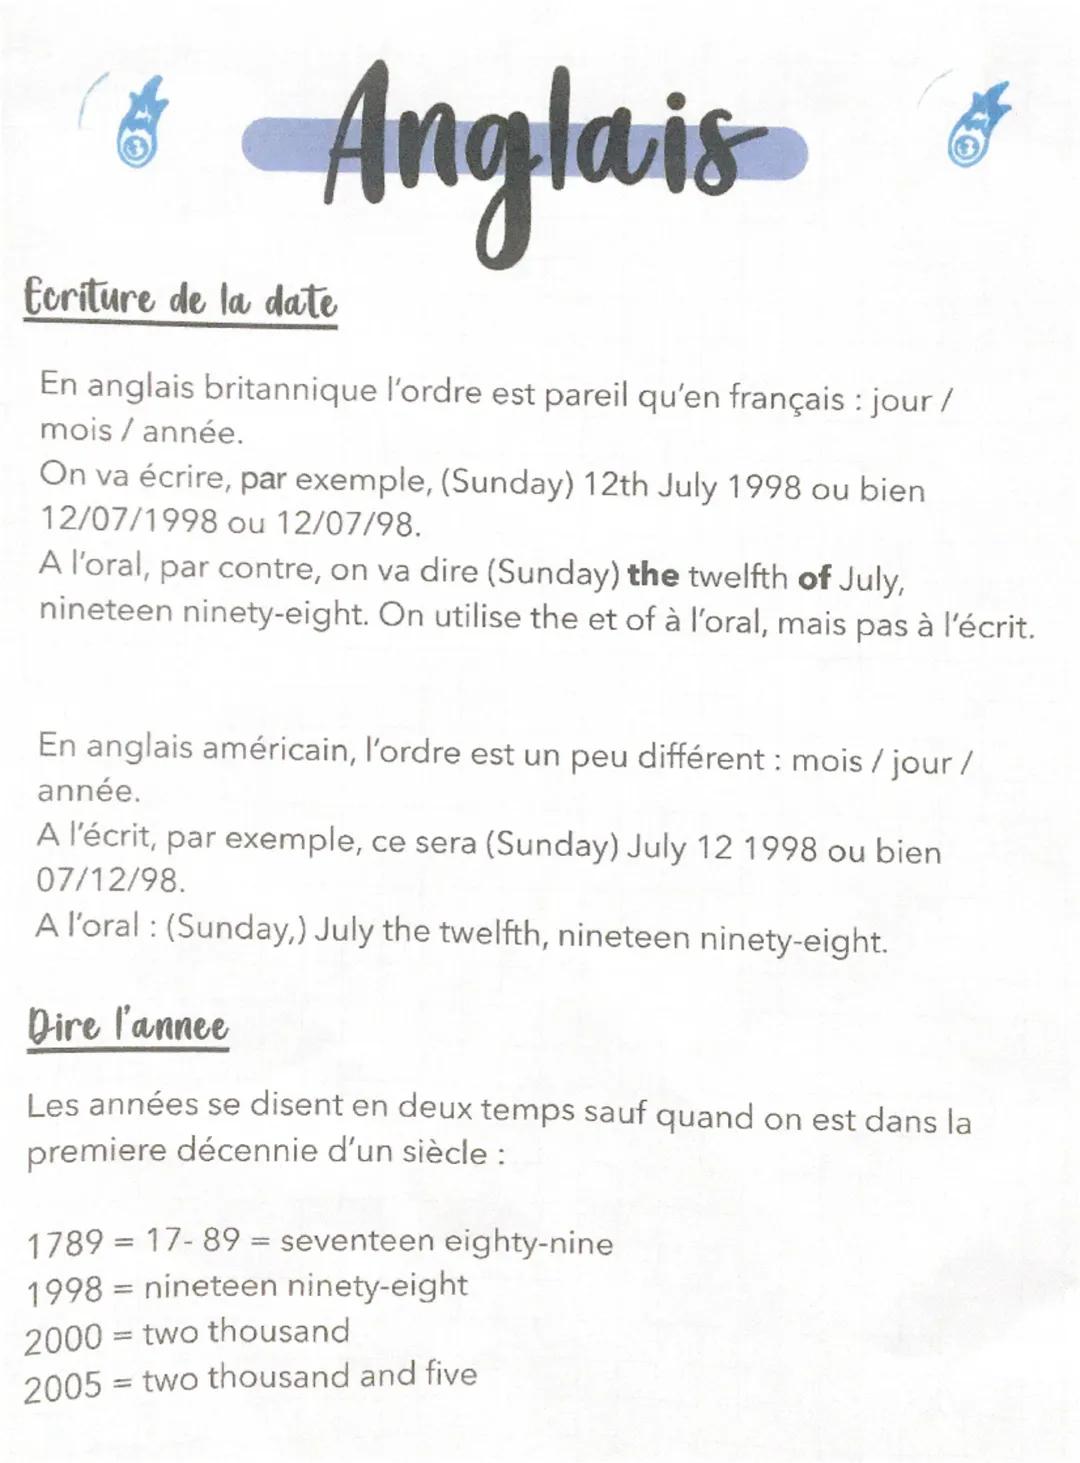 Anglais
Ecriture de la date
En anglais britannique l'ordre est pareil qu'en français : jour /
mois / année.
On va écrire, par exemple, (Sunday) 12th July 1998 ou bien
12/07/1998 ou 12/07/98.
A l'oral, par contre, on va dire (Sunday) the twelfth of July,
nineteen ninety-eight. On utilise the et of à l'oral, mais pas à l'écrit.
En anglais américain, l'ordre est un peu différent : mois / jour /
année.
A l'écrit, par exemple, ce sera (Sunday) July 12 1998 ou bien
07/12/98.
A l'oral : (Sunday,) July the twelfth, nineteen ninety-eight.
Dire l'annee
Les années se disent en deux temps sauf quand on est dans la
premiere décennie d'un siècle :
1789 = 17- 89 = seventeen eighty-nine
1998 = nineteen ninety-eight
2000 = two thousand
2005 = two thousand and five